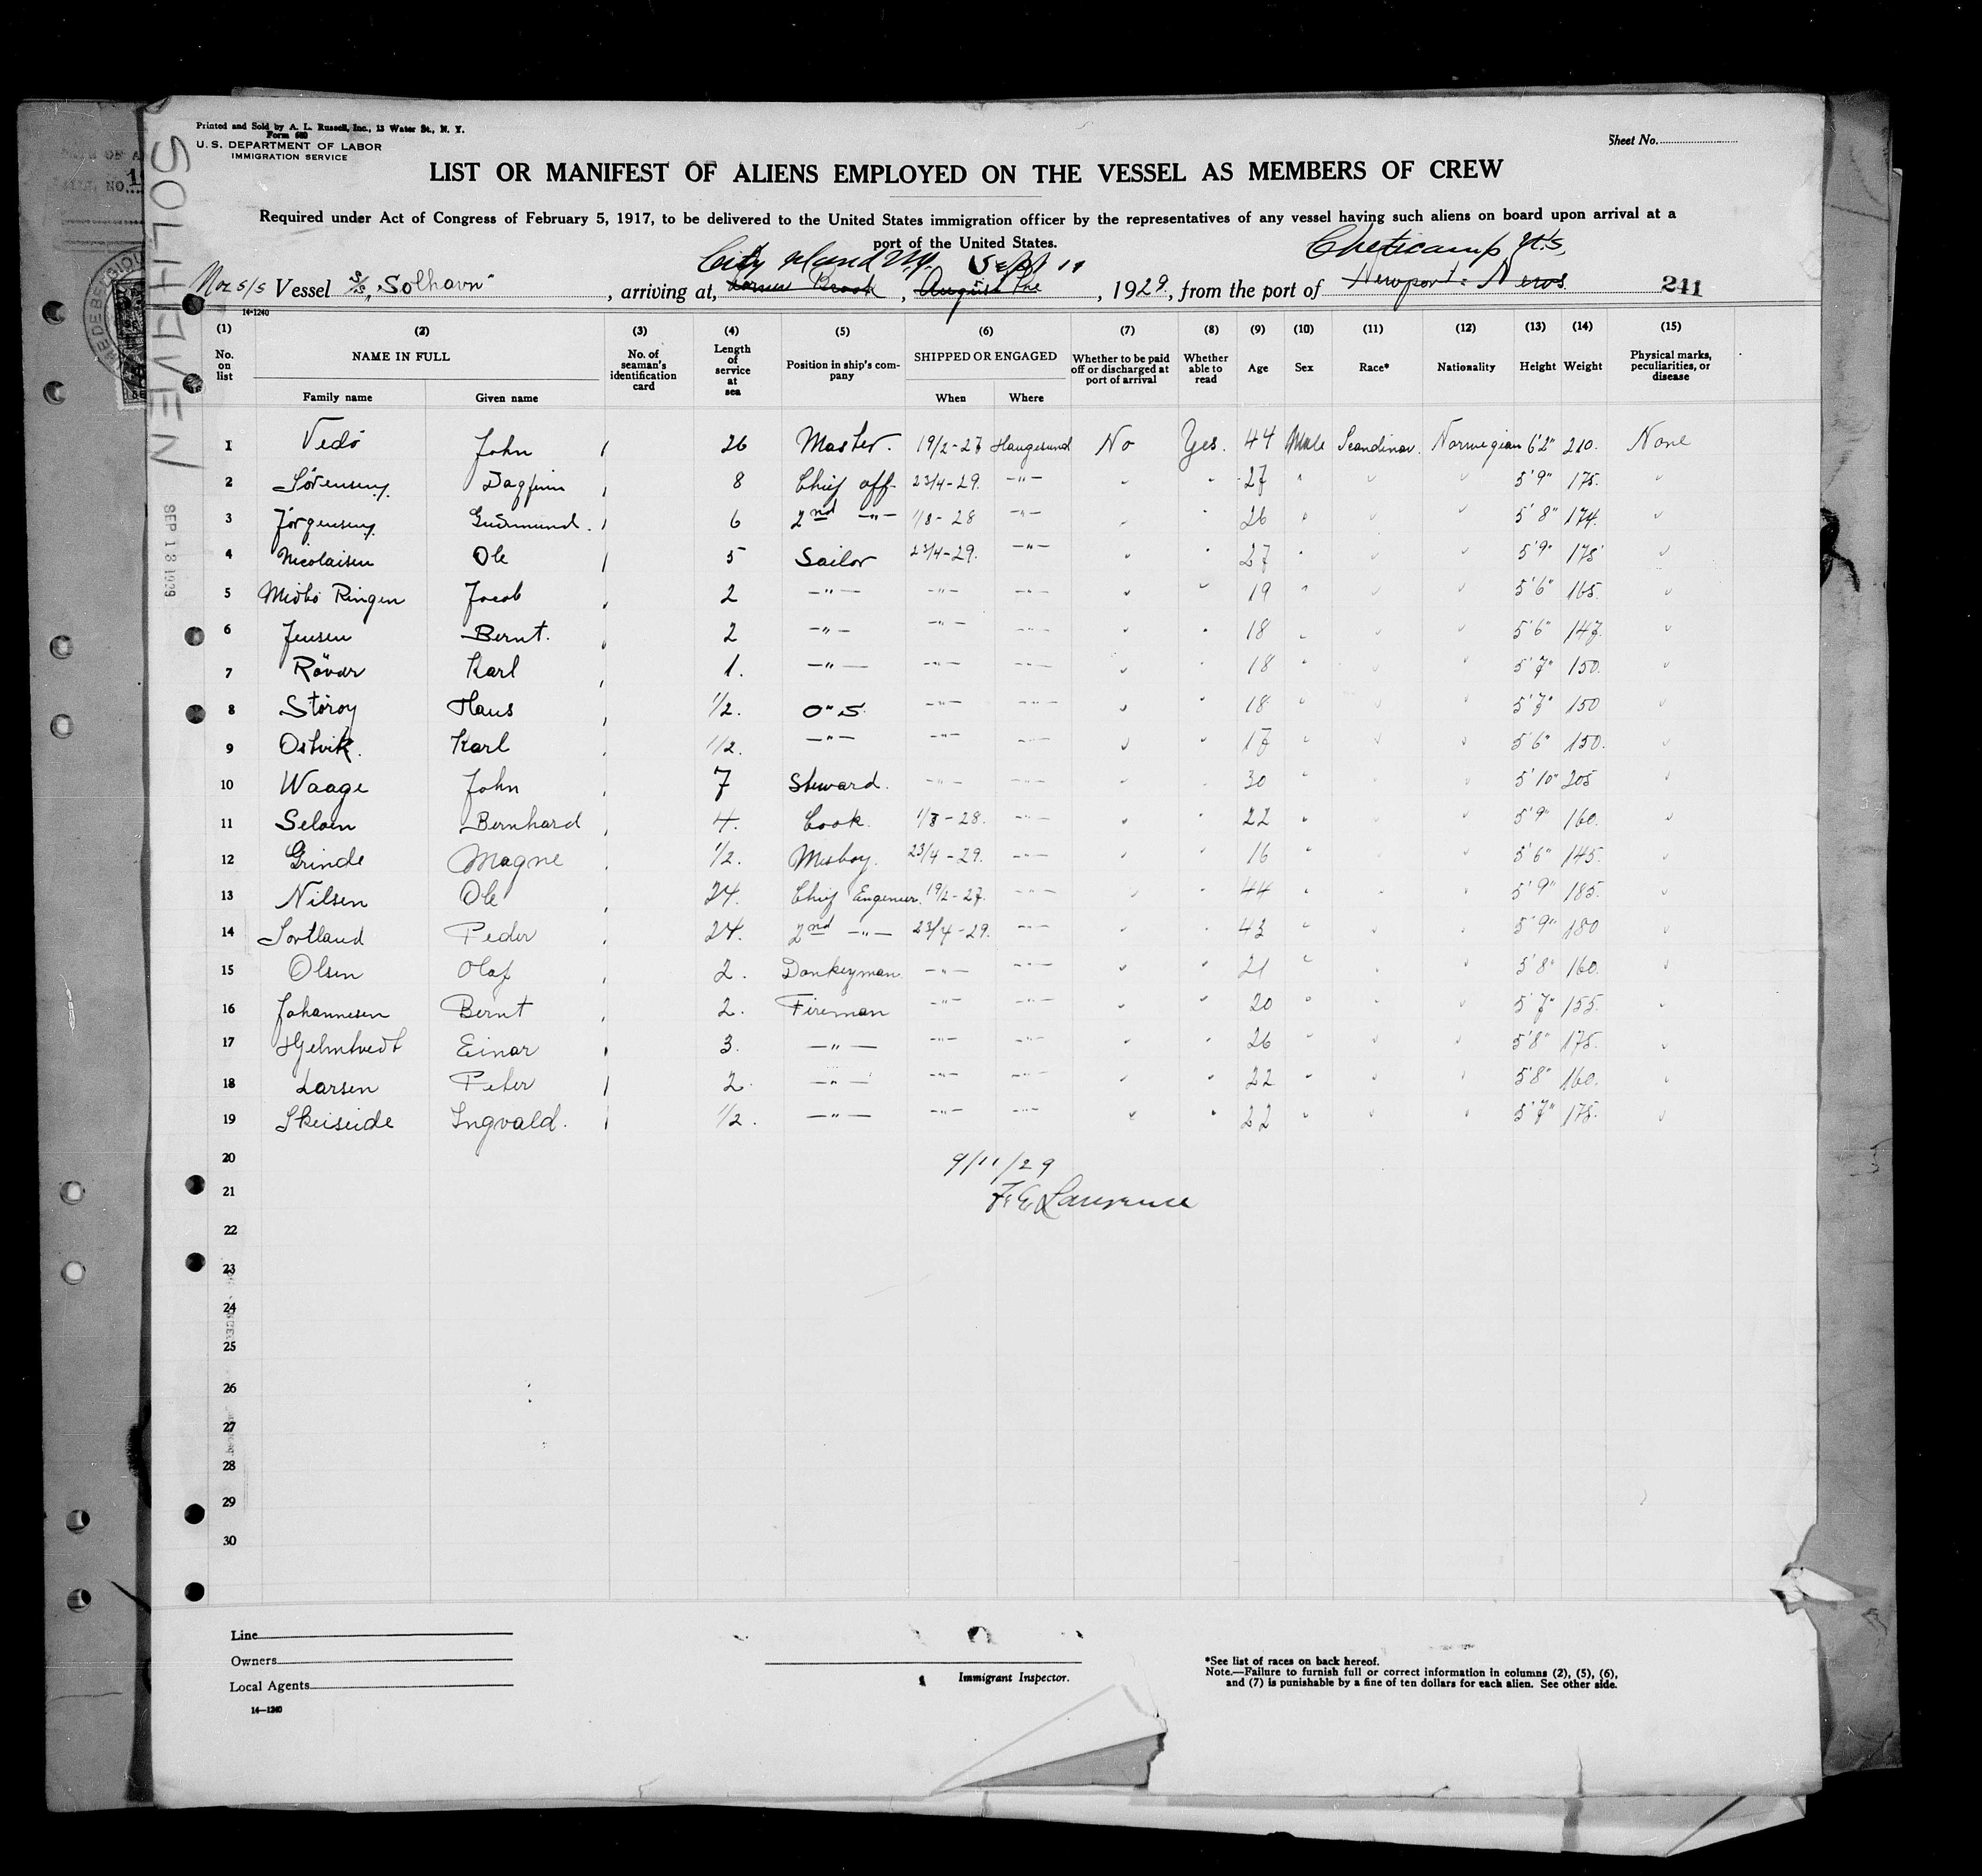 Printed and Sold by A. L. Russell, Inc., 13 Water St., N. Y.
Form 680
U. S. DEPARTMENT OF LABOR
IMMIGRATION SERVICE
Sheet No.
LIST OR MANIFEST OF ALIENS EMPLOYED ON THE VESSEL AS MEMBERS OF CREW
Required under Act of Congress of February 5, 1917, to be delivered to the United States immigration officer by the representatives of any vessel having such aliens on board upon arrival at a
port of the United States.
City Island N.Y. Sept 11 Cheticamp N.S.
Nor s/s Vessel S/S "Solhavn", arriving at, Brook, August, 1929, from the port of Newport: News 241
14-1240
SOLHAVEN
SEP 18 1929
(1) (2) (3) (4) (5) (6) (7) (8) (9) (10) (11) (12) (13) (14) (15)
No. on list NAME IN FULL No. of seaman's identification card Length of service at sea Position in ship's company SHIPPED OR ENGAGED Whether to be paid off or discharged at port of arrival Whether able to read Age Sex Race* Nationality Height Weight Physical marks, peculiarities, or disease
Family name Given name When Where
1 Vedö John 26 Master. 19/2-27 Haugesund No Yes. 44 Male Scandinav. Norwegian 6'2" 210. None
2 Sörensen Dagfinn 8 Chief off 23/4-29. -"- 27 5'9" 175.
3 Jörgensen Gudmund. 6 2nd -"- 1/8-28 -"- 26 5'8" 174.
4 Nicolaisen Ole 5 Sailor 23/4-29. -"- 27 5'9" 175
5 Midbö Ringen Jacob 2 -"- -"- -"- 19 5'6" 165.
6 Jensen Bernt. 2 -"- -"- -"- 18 5'6" 147.
7 Rövær Karl 1. -"- -"- -"- 18 5'7" 150.
8 Störoy Hans 1/2. O"S. -"- -"- 18 5'7" 150
9 Ostvik. Karl 1/2. -"- -"- -"- 17 5'6" 150.
10 Waage John 7 Steward. -"- -"- 30 5'10" 205
11 Seloen Bernhard 4. Cook. 1/8-28. -"- 22 5'9" 160.
12 Grinde Magne 1/2. Mesboy. 23/4-29. -"- 16 5'6" 145.
13 Nilsen Ole 24. Chief Engeneer. 19/2-27. -"- 44 5'9" 185.
14 Sortland Peder 24. 2nd -"- 23/4-29. -"- 43 5'9" 180
15 Olsen Olaf 2. Donkeyman. -"- -"- 21 5'8" 160.
16 Johannesen Bernt 2. Fireman -"- -"- 20 5'7" 155.
17 Hjelmtvedt Einar 3. -"- -"- -"- 26 5'8" 175.
18 Larsen Peter 2. -"- -"- -"- 22 5'8" 160.
19 Skeiseide Ingvald. 1/2. -"- -"- -"- 22 5'7" 175.
20 9/11/29
21 F. E. Lawrence
22
23
24
25
26
27
28
29
30
Line
Owners
Local Agents
14-1240
Immigrant Inspector.
*See list of races on back hereof.
Note.—Failure to furnish full or correct information in columns (2), (5), (6),
and (7) is punishable by a fine of ten dollars for each alien. See other side.